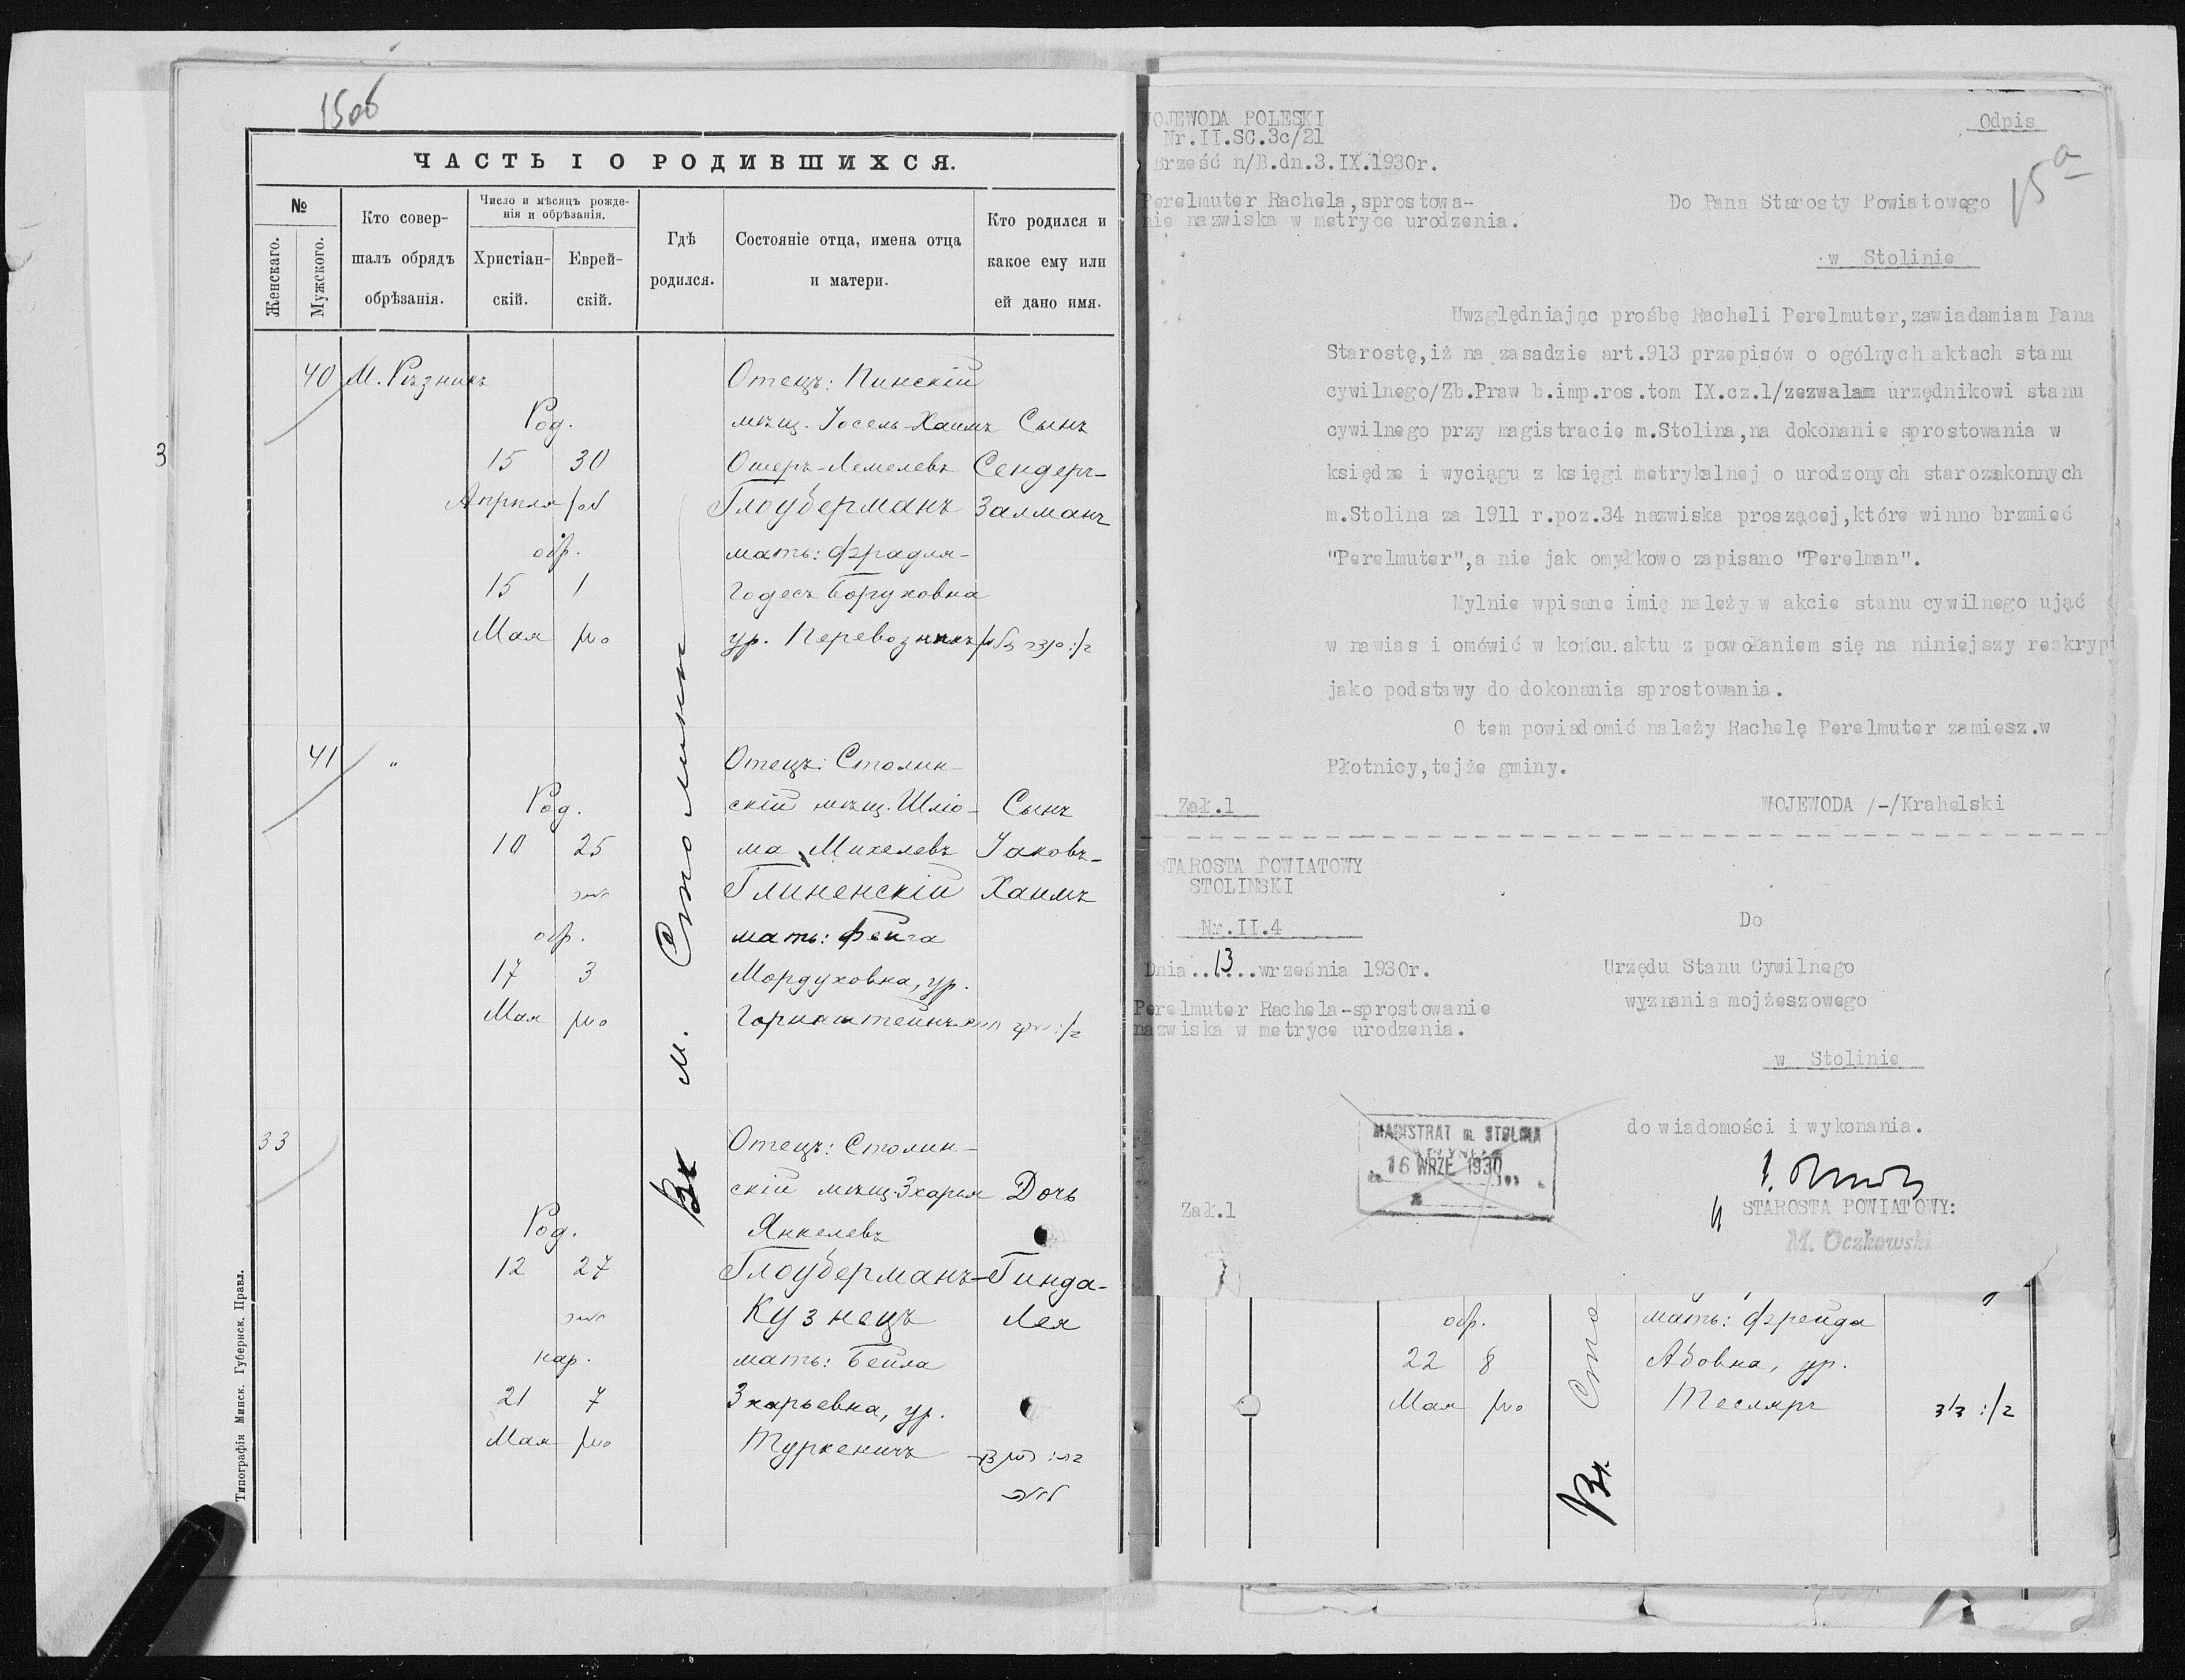 15об
ЧАСТЬ I О РОДИВШИХСЯ.
№
Женскаго.
Мужского.
Кто совер-
шалъ обрядъ
обрѣзанія.
Число и мѣсяцъ рожде-
нія и обрѣзанія.
Христіан-
скій.
Еврей-
скій.
Гдѣ
родился.
Состояніе отца, имена отца
и матери.
Кто родился и
какое ему или
ей дано имя.
40 М. Рѣзникъ Отецъ: Пинскій
Род. мѣщ. Іосель-Хаимъ Сынъ
15 30 Ошеръ-Лемелевъ Сендеръ-
Апрѣля Глоуберманъ Залманъ
обр. мать: Фрадля-
15 1 Годесъ Боруховна
Мая ур. Перевозникъ
41 " Отецъ: Столин-
Род. скій мѣщ. Шліо- Сынъ
10 25 ма Михелевъ Іаковъ-
Глиненскій Хаимъ
обр. мать: Фейга
17 3 Мордуховна, ур.
Мая Горнштейнъ
33 Отецъ: Столин-
скій мѣщ. Зхарья Дочь
Род. Янкелевъ
12 27 Глоуберманъ- Гинда-
Кузнецъ Лея
нар. мать: Бейла
21 7 Зхарьевна, ур.
Мая Туркеничъ
Въ м. Столинѣ
Типографія Минск. Губернск. Правл.
3
WOJEWODA POLESKI
Nr.II.SC.3c/21
Brześć n/B.dn.3.IX.1930r.
Odpis
15a
Perelmuter Rachela,sprostowa-
nie nazwiska w metryce urodzenia.
Do Pana Starosty Powiatowego
w Stolinie
Uwzględniając prośbę Racheli Perelmuter,zawiadamiam Pana
Starostę,iż na zasadzie art.913 przepisów o ogólnych aktach stanu
cywilnego/Zb.Praw b.imp.ros.tom IX.cz.1/zezwalam urzędnikowi stanu
cywilnego przy magistracie m.Stolina,na dokonanie sprostowania w
księdze i wyciągu z księgi metrykalnej o urodzonych starozakonnych
m.Stolina za 1911 r.poz.34 nazwiska proszącej,które winno brzmieć
"Perelmuter",a nie jak omyłkowo zapisano "Perelman".
Mylnie wpisane imię należy w akcie stanu cywilnego ująć
w nawias i omówić w końcu.aktu z powołaniem się na niniejszy reskrypt
jako podstawy do dokonania sprostowania.
O tem powiadomić należy Rachelę Perelmuter zamiesz.w
Płotnicy,tejże gminy.
Zał.1
WOJEWODA /-/Krahelski
STAROSTA POWIATOWY
STOLINSKI
Nr.II.4
Dnia..13...września 1930r.
Perelmuter Rachela-sprostowanie
nazwiska w metryce urodzenia.
Do
Urzędu Stanu Cywilnego
wyznania mojżeszowego
w Stolinie
do wiadomości i wykonania.
MAGISTRAT m. STOLINA
16 WRZE 1930
Zał.1
STAROSTA POWIATOWY:
M. Oczkowski
обр. мать: Фрейда
22 8 Абовна, ур.
Мая Тесляръ
Въ Сто